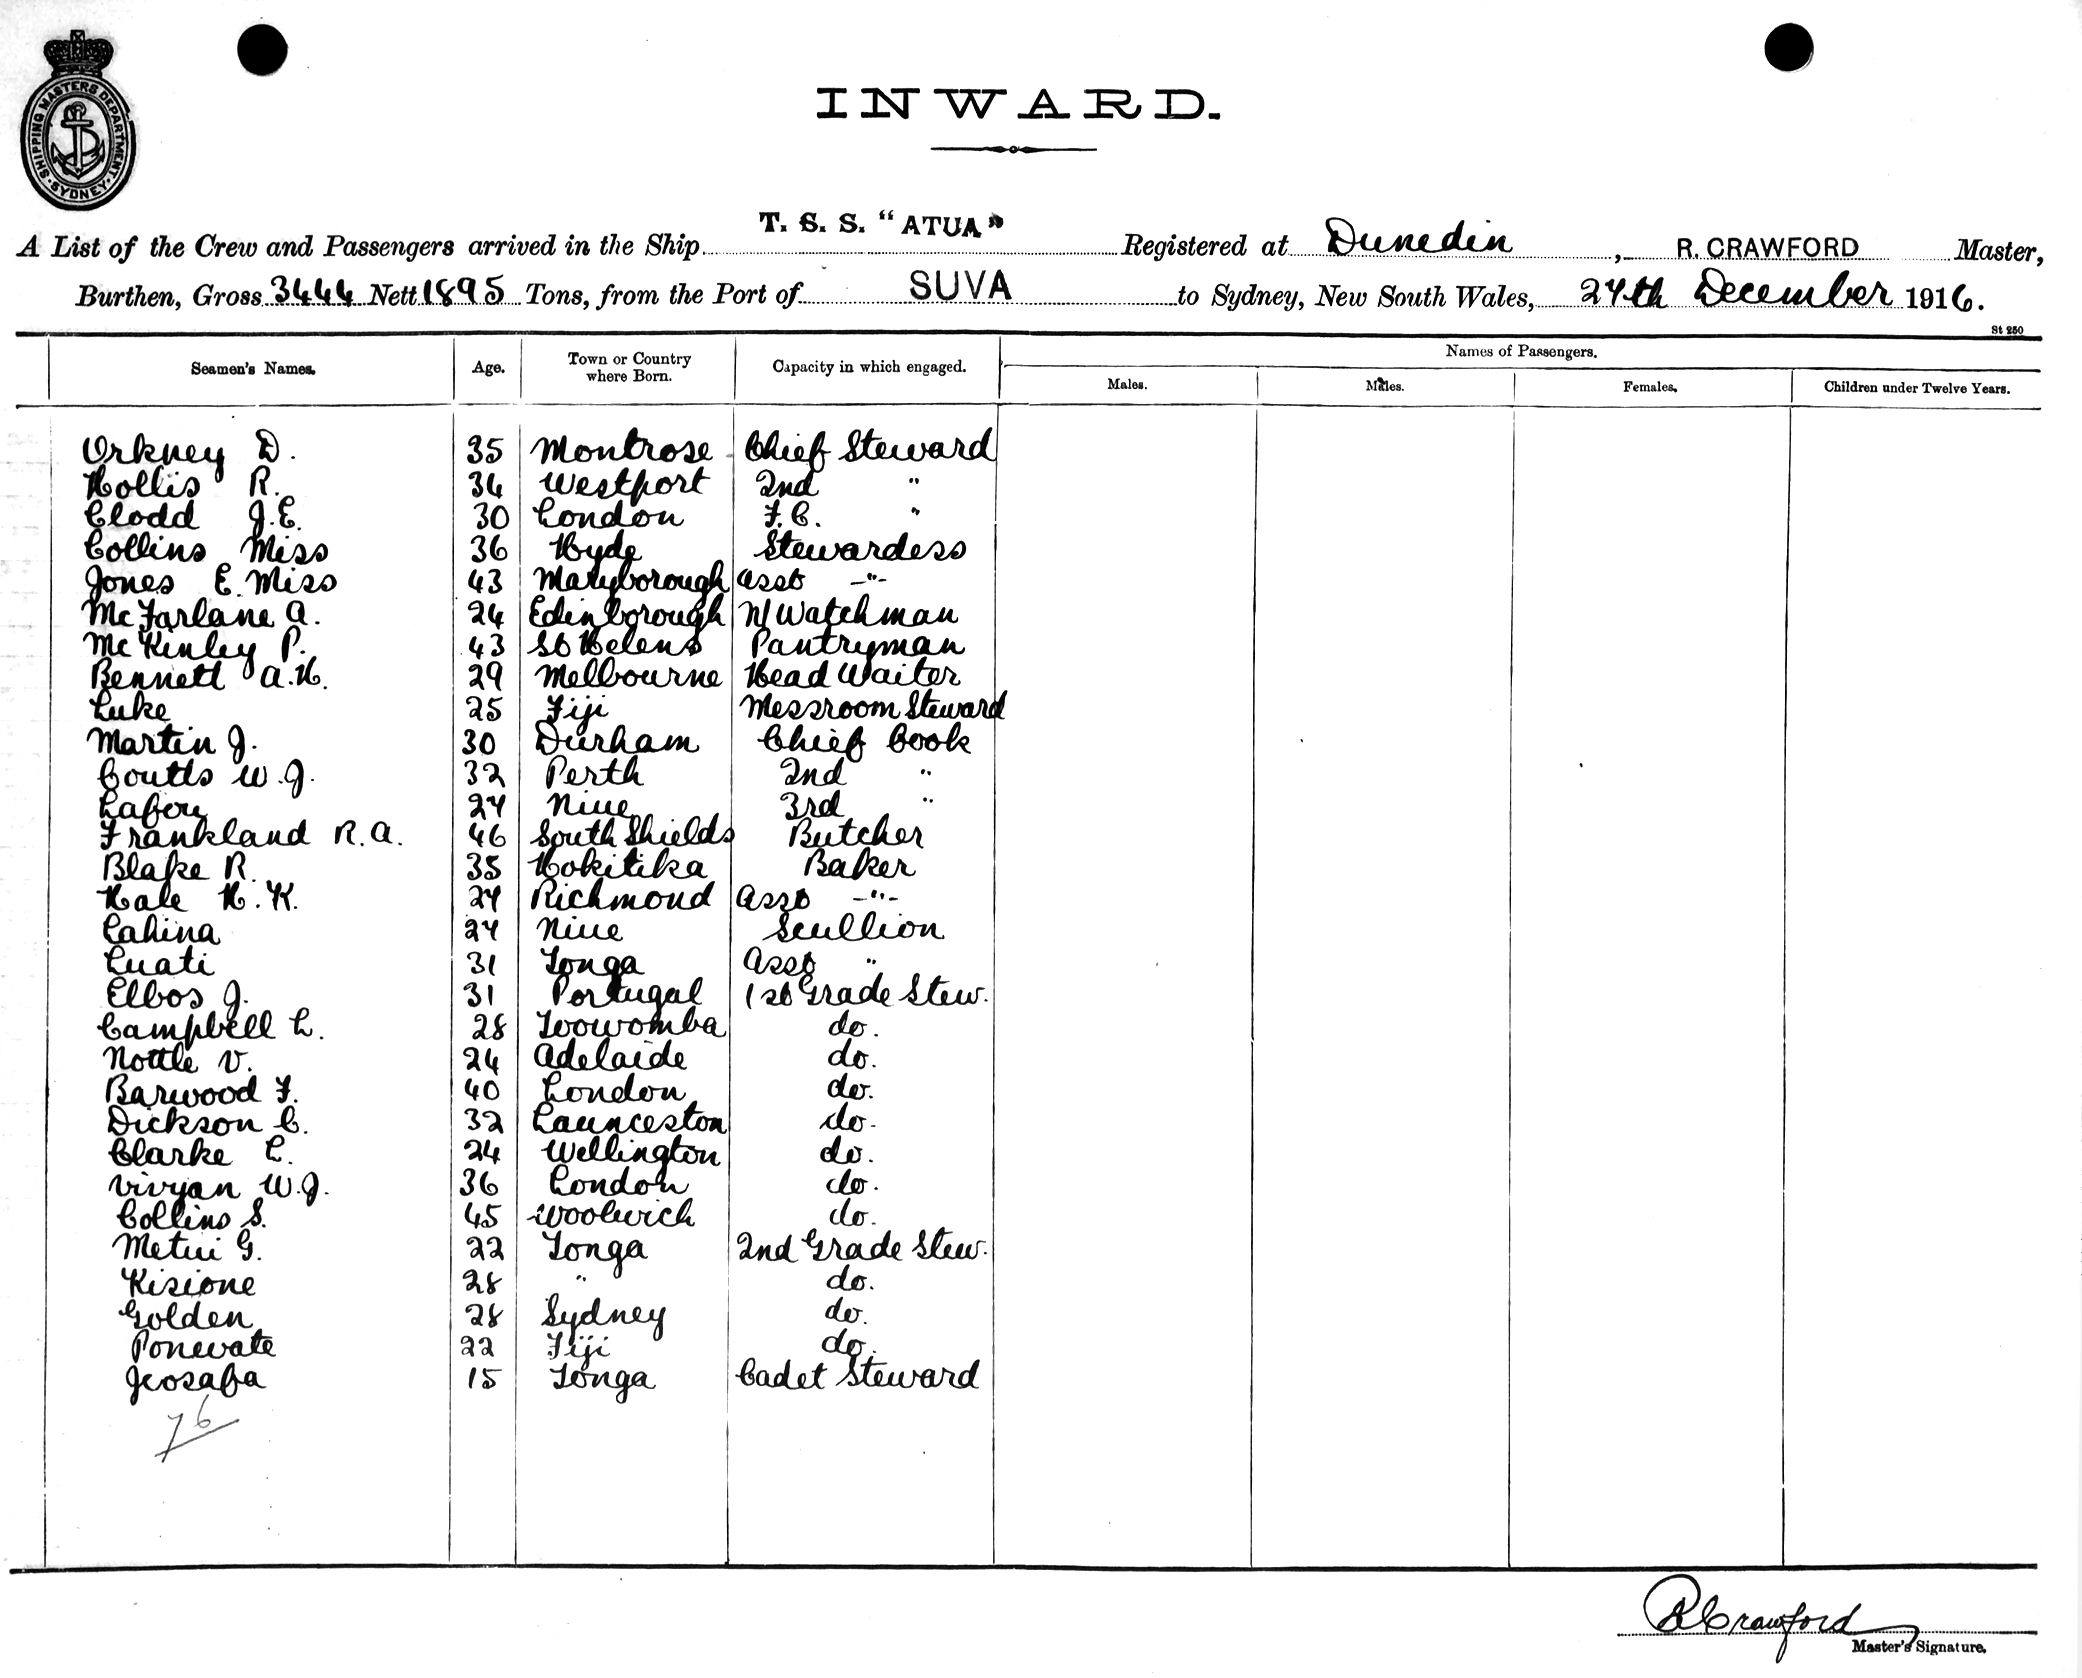 SHIPPING MASTERS DEPARTMENT. SYDNEY
INWARD.
A List of the Crew and Passengers arrived in the Ship T. S. S. "ATUA" Registered at Dunedin, R. CRAWFORD Master,
Burthen, Gross 3444 Nett 1895 Tons, from the Port of SUVA to Sydney, New South Wales, 27th December 1916.
St 250
Seamen's Names. Age. Town or Country where Born. Capacity in which engaged. Names of Passengers.
Males. Males. Females. Children under Twelve Years.
Orkney D. 35 Montrose Chief Steward
Hollis R. 34 Westport 2nd "
Clodd J.E. 30 London F.C. "
Collins Miss 36 Hyde Stewardess
Jones E. Miss 43 Maryborough Asst -"-
McFarlane A. 24 Edinborough N/Watchman
McKinley P. 43 St Helens Pantryman
Bennett A.H. 29 Melbourne Head Waiter
Luke 25 Fiji Messroom Steward
Martin J. 30 Durham Chief Cook
Coutts W.J. 32 Perth 2nd "
27 Niue 3rd "
Frankland R.A. 46 South Shields Butcher
Blake R. 35 Hokitika Baker
Hale H.K. 27 Richmond Asst -"-
Lahina 27 Niue Scullion
Luati 31 Tonga Asst "
Elbos J. 31 Portugal 1st Grade Stew.
Campbell L. 28 Toowomba do.
Nottle V. 24 Adelaide do.
Barwood F. 40 London do.
Dickson C. 32 Launceston do.
Clarke L. 24 Wellington do.
Vivyan W.J. 36 London do.
Collins S. 45 Woolwich do.
Metui G. 22 Tonga 2nd Grade Stew.
Kisione 28 " do.
Golden 28 Sydney do.
Ponewate 22 Fiji do.
15 Tonga Cadet Steward
76
R Crawford
Master's Signature.